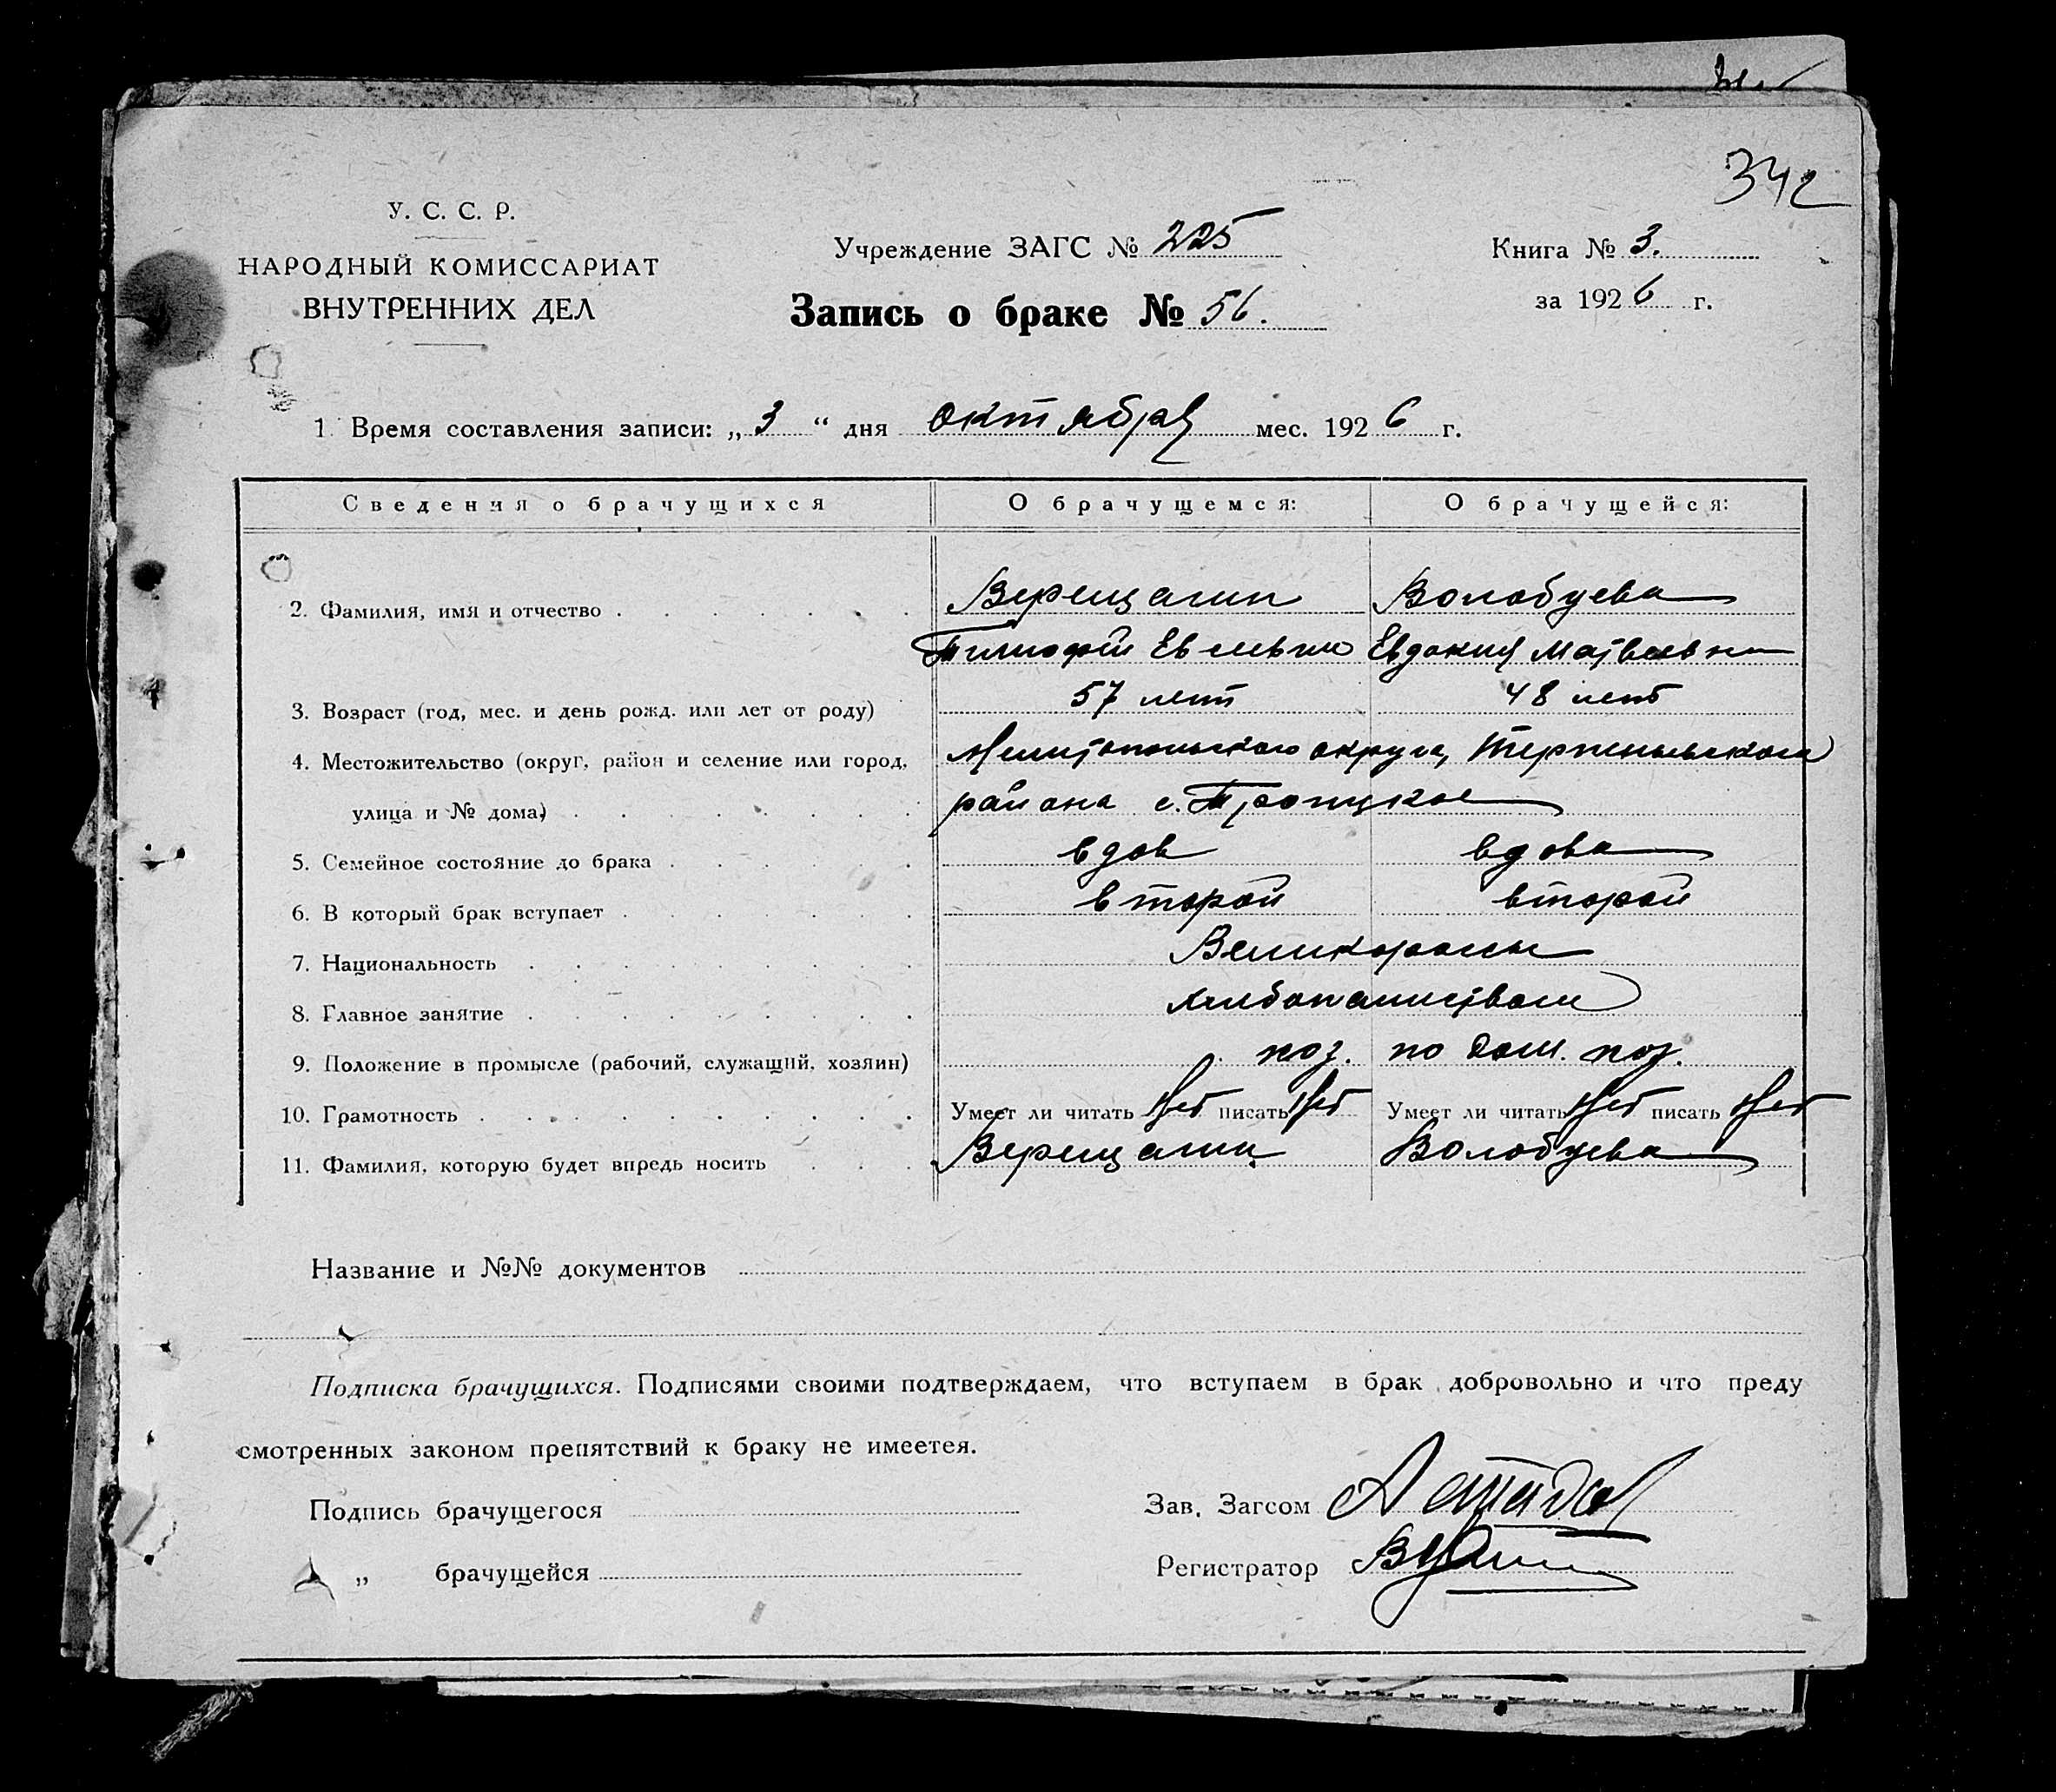 342
У. С. С. Р.
НАРОДНЫЙ КОМИССАРИАТ
ВНУТРЕННИХ ДЕЛ
Учреждение ЗАГС № 225
Книга № 3.
за 1926 г.
Запись о браке № 56.
1. Время составления записи: „3“ дня октября мес. 1926 г.
Сведения о брачущихся О брачущемся: О брачущейся:
2. Фамилия, имя и отчество Верещагин Волобуева
Тимофей Евдокия Матвеевна
3. Возраст (год, мес. и день рожд. или лет от роду) 57 лет 48 лет
4. Местожительство (округ, район и селение или город, Мелитопольского округа,
улица и № дома) района с. Троицкое
5. Семейное состояние до брака вдов вдова
6. В который брак вступает второй второй
7. Национальность Великороссы
8. Главное занятие хлебопашеством
9. Положение в промысле (рабочий, служащий, хозяин) хоз. по дом. хоз.
10. Грамотность Умеет ли читать Нет писать Нет Умеет ли читать Нет писать Нет
11. Фамилия, которую будет впредь носить Верещагин Волобуева
Название и №№ документов
Подписка брачущихся. Подписями своими подтверждаем, что вступаем в брак добровольно и что преду
смотренных законом препятствий к браку не имеетея.
Подпись брачущегося
Зав. Загсом
„ брачущейся
Регистратор